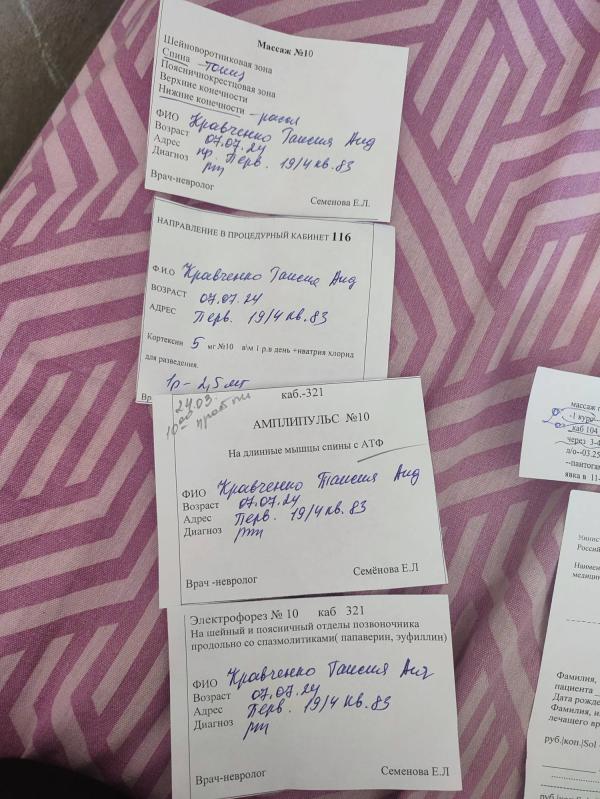 Массаж №10
Шейноворотниковая зона
Спина - тониз
Пояснично­крестцовая зона
Верхние конечности
Нижние конечности - рассл
ФИО Кравченко Таисия Анд
Возраст 07.07.24
Адрес пр. Перв. 19/4 кв. 83
Диагноз рт
Врач-невролог
Семенова Е.Л.
НАПРАВЛЕНИЕ В ПРОЦЕДУРНЫЙ КАБИНЕТ 116
Ф.И.О Кравченко Таисия Анд
ВОЗРАСТ 07.07.24
АДРЕС Перв. 19/4 кв. 83
Кортексин 5 мг №10 в\м 1 р.в день +натрия хлорид
для разведения.
1р - 2,5 мл
Вр
24.03.
каб.-321
АМПЛИПУЛЬС №10
На длинные мышцы спины с АТФ
ФИО Кравченко Таисия Анд
Возраст 07.07.24
Адрес Перв. 19/4 кв. 83
Диагноз рт
Врач -невролог
Семёнова Е.Л
Электрофорез № 10 каб 321
На шейный и поясничный отделы позвоночника
продольно со спазмолитиками( папаверин, эуфиллин)
ФИО Кравченко Таисия Анд
Возраст 07.07.24
Адрес Перв. 19/4 кв. 83
Диагноз рт
Врач-невролог
Семенова Е.Л
массаж
-1 курс
каб 104
через 3-4
л/о--03.25
--пантогам
явка в 11-
Минис
Росси
Наимен
медицин
Фамилия,
пациента
Дата рожде
Фамилия, и
лечащего вр
руб.|коп.|Sol
руб.|коп.